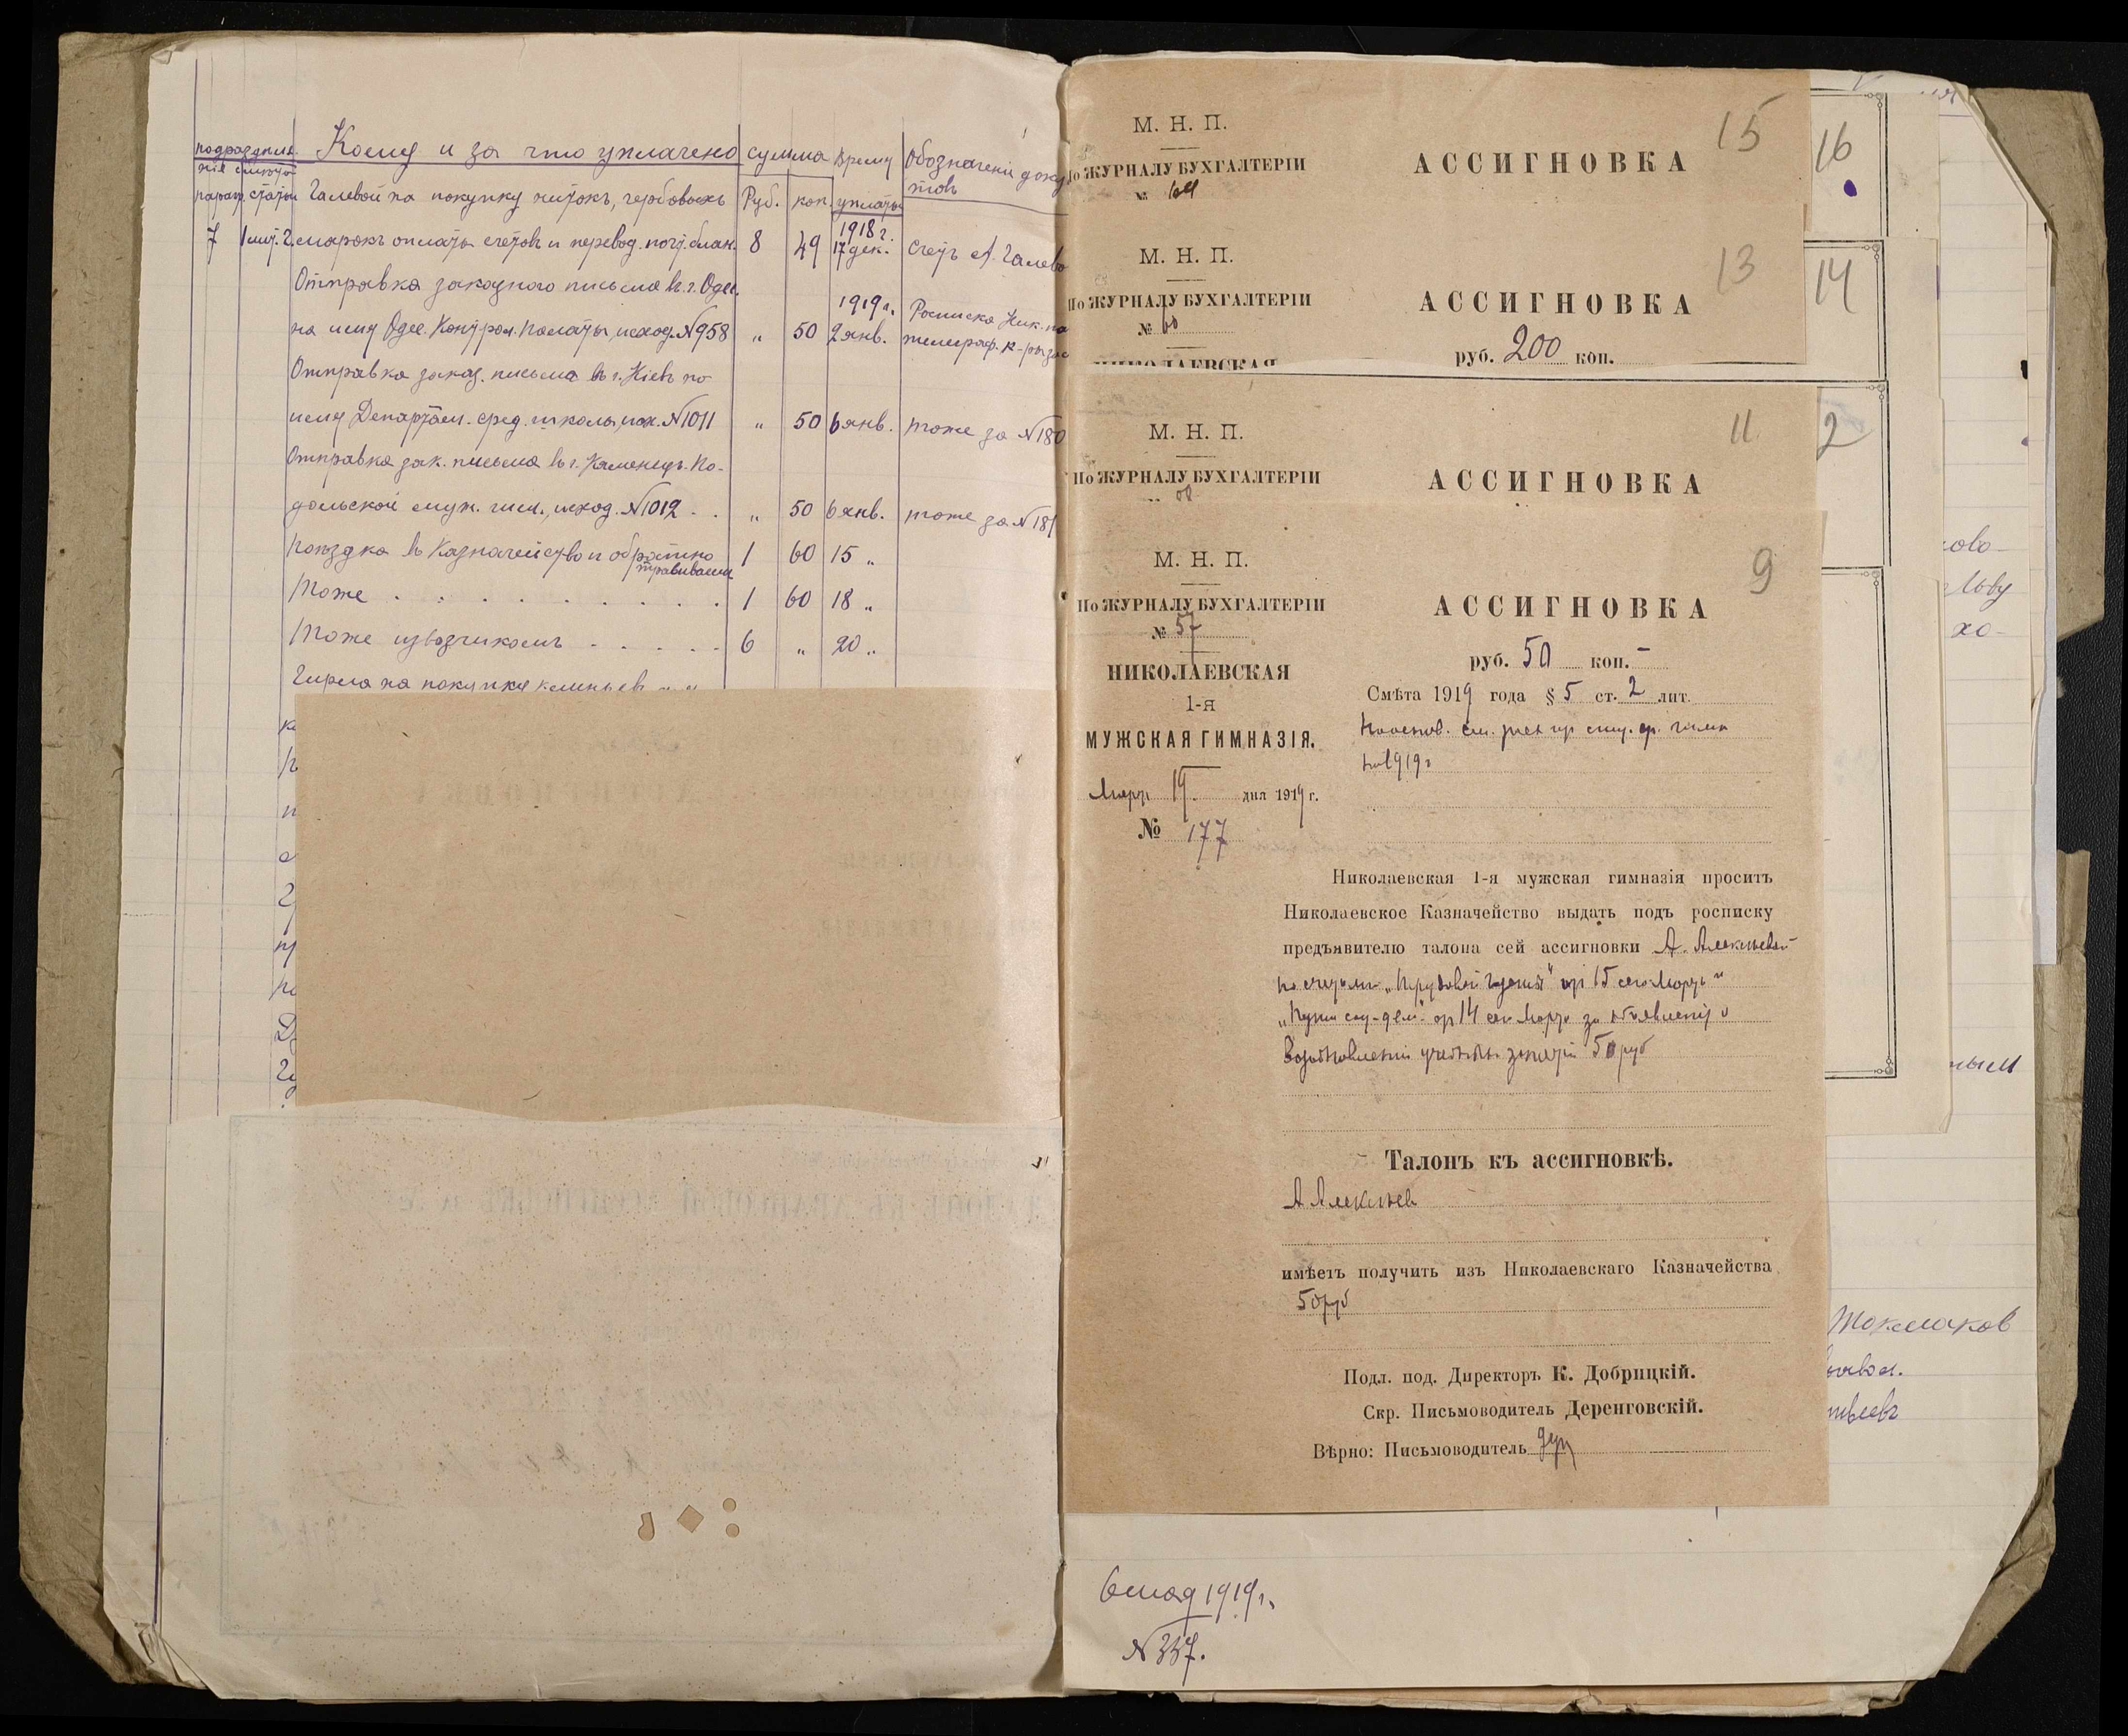 подраздѣле-
нія смѣты
Кому и за что уплачено
сумма
Время
уплаты
Обозначеніе доку
товъ
параг. статьи
Руб.
коп.
Галевой на покупку нитокъ, гербовыхъ
7
1 лит. 2.
марокъ оплаты счетовъ и перевод. почт. блан.
8
49
1918 г.
17 дек.
Счетъ А. Галево
Отправка заказного письма въ г. Одес.
на имя Одес. Контрол. Палаты, исход. №958
„
50
1919 г.
2 янв.
Росписка Ник. по
телеграф. к-ры за
Отправка заказ. письма въ г. Кіевъ на
имя Департам. сред. школы, исх. №1011
„
50
6 янв.
тоже за №180
Отправка зак. письма въ г. Каменецъ-По-
дольской муж. гим., исход. №1012 . .
„
50
6 янв.
тоже за №181
Поѣздка въ Казначейство и обратно
трамваемъ
1
60
15 „
Тоже . . . . . . . . . .
1
60
18 „
Тоже извозчикомъ . . . . .
6
„
20 „
на покупку
М. Н. П.
По ЖУРНАЛУ БУХГАЛТЕРІИ
№ 64
АССИГНОВКА
15
16
М. Н. П.
По ЖУРНАЛУ БУХГАЛТЕРІИ
№ 60
НИКОЛАЕВСКАЯ
АССИГНОВКА
13
14
руб. 200 коп.
М. Н. П.
По ЖУРНАЛУ БУХГАЛТЕРІИ
АССИГНОВКА
11
2
М. Н. П.
По ЖУРНАЛУ БУХГАЛТЕРІИ
№ 57
НИКОЛАЕВСКАЯ
1-я
МУЖСКАЯ ГИМНАЗІЯ.
Март 19 дня 1919 г.
№ 177
9
АССИГНОВКА
руб. 50 коп. –
Смѣта 1919 года § 5 ст. 2 лит.
1919 г
Николаевская 1-я мужская гимназія проситъ
Николаевское Казначейство выдать подъ росписку
предъявителю талона сей ассигновки А.
по счетамъ от 15 сего Марта и
от 14 сего Марта за объявленія о
возобновленіи учебныхъ занятій 50 руб
Талонъ къ ассигновкѣ.
имѣетъ получить изъ Николаевскаго Казначейства
50 руб
Подл. под. Директоръ К. Добрицкій.
Скр. Письмоводитель Деренговскій.
Вѣрно: Письмоводитель
ково-
Льву
хо-
ным
Токмаков
6 мая 1919 г.
№ 337.